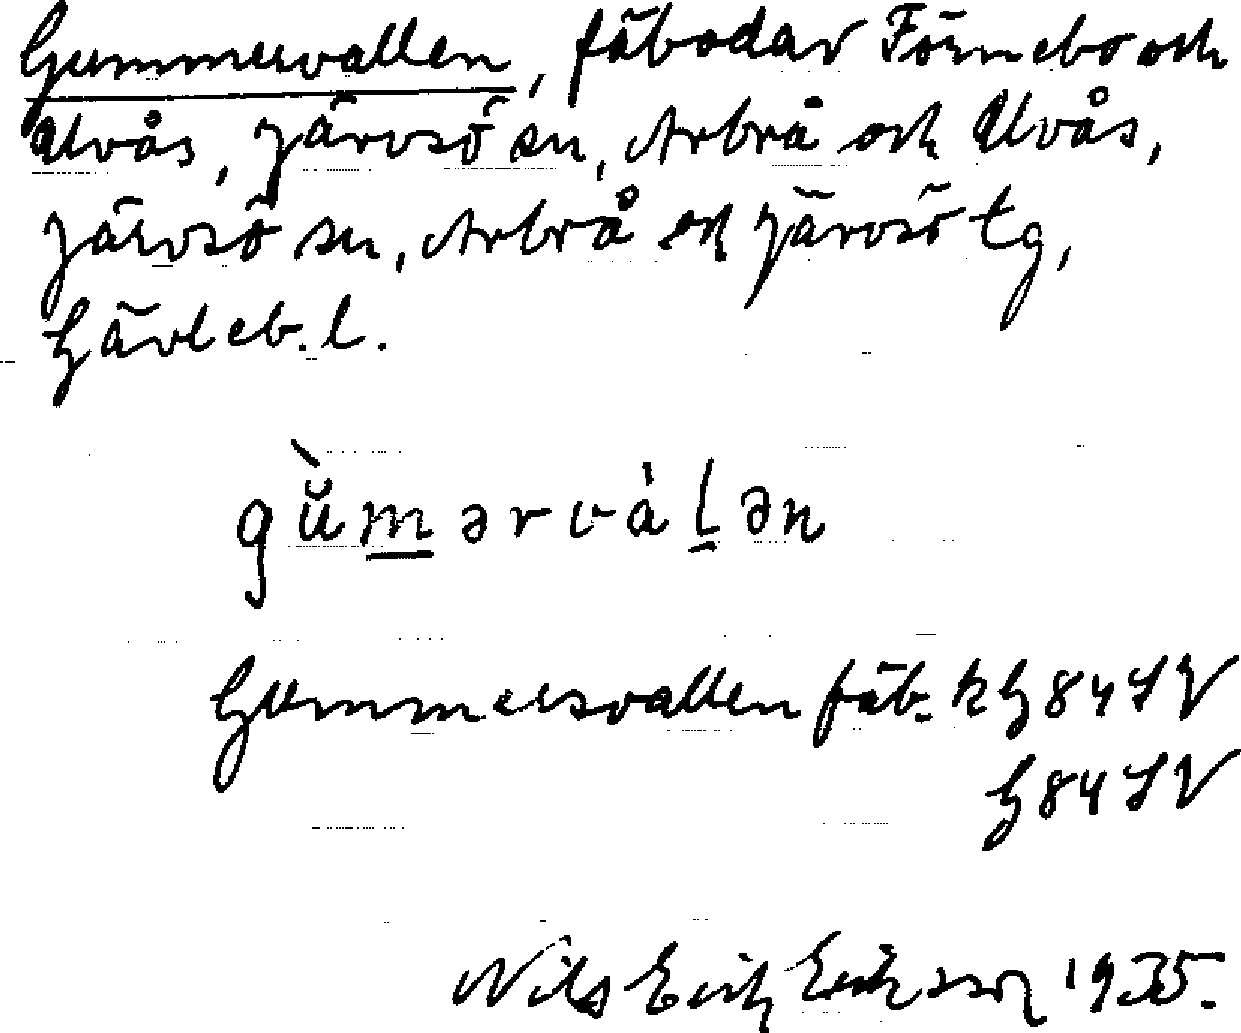 Gummervallen, fäbodar Förnebo och
Ulvås, Järvsö sn, Arbrå och Ulvås,
Järvsö sn, Arbrå och Järvsö tg,
Gävleb. l.
gùmərvàlən
Gummersvallen fäb. k G 84 SV
G 84 SV
Nils Erik Eriksson 1935.